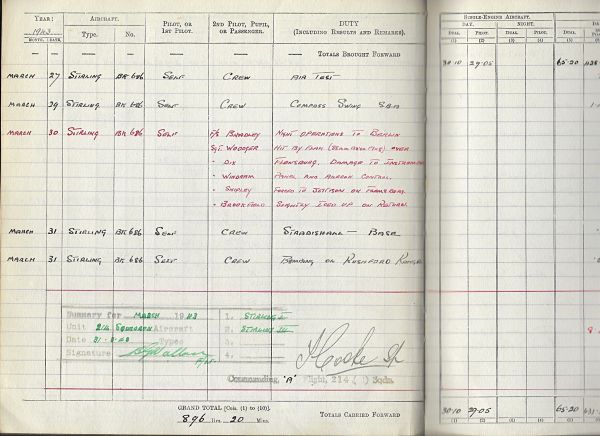 YEAR: AIRCRAFT. PILOT, OR 2ND PILOT, PUPIL, DUTY SINGLE-ENGINE AIRCRAFT.
1943 1ST PILOT. OR PASSENGER. (INCLUDING RESULTS AND REMARKS). DAY. NIGHT.
MONTH. DATE. Type. No. DUAL. PILOT. DUAL. PILOT. DUAL.
(1) (2) (3) (4) (5)
— — — — — — TOTALS BROUGHT FORWARD 30·10 29·05 65·20
MARCH 27 STIRLING BK 686 SELF CREW AIR TEST
MARCH 29 STIRLING BK 686 SELF CREW COMPASS SWING S.B.A
MARCH 30 STIRLING BK 686 SELF F/S BRADLEY NIGHT OPERATIONS TO BERLIN
SGT. WOODGER HIT BY FLAK OVER
" DIX FLENSBURG. DAMAGE TO INSTRUMENT
" WINDRAM PANEL AND AILERON CONTROL.
" SHIPLEY FORCED TO JETTISON ON
" BROOKFIELD SLIGHTLY ICED UP ON RETURN.
MARCH 31 STIRLING BK 686 SELF CREW STRADISHALL — BASE
MARCH 31 STIRLING BK 686 SELF CREW BOMBING ON RUSHFORD
Summary for MARCH 1943 1. STIRLING I
Unit 214 SQUADRON Aircraft 2. STIRLING III
Date 31-3-43 Types 3.
Signature 4.
Commanding, "A" Flight, 214 ( ) Sqdn.
GRAND TOTAL [Cols. (1) to (10)].
896 Hrs. 20 Mins. TOTALS CARRIED FORWARD 30·10 29·05 65·20
(1) (2) (3) (4) (5)